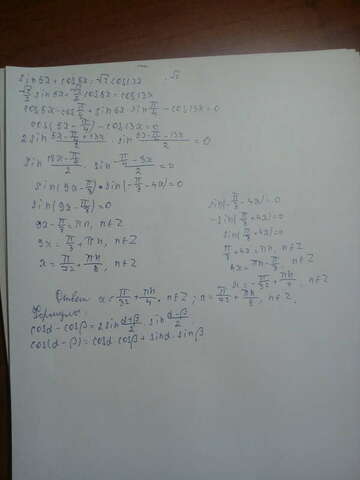 sin5x+cos5x=√2 cos13x
√2/2 sin5x+√2/2 cos5x=cos13x
cos5x·cos π/4 + sin5x·sin π/4 - cos13x=0
cos(5x-π/4)-cos13x=0
2sin (5x-π/4+13x)/2 · sin (5x-π/4-13x)/2 =0
sin (18x-π/4)/2 · sin (-π/4-8x)/2 =0
sin(9x-π/8)·sin(-π/8-4x)=0
sin(9x-π/8)=0
9x-π/8=πn, n∈Z
9x=π/8+πn, n∈Z
x=π/72+πn/9, n∈Z
sin(-π/8-4x)=0
-sin(π/8+4x)=0
sin(π/8+4x)=0
π/8+4x=πn, n∈Z
4x=πn-π/8, n∈Z
x=-π/32+πn/4, n∈Z
Ответ x=π/32+πn/4, n∈Z; n=π/72+πn/9, n∈Z.
Формулы:
cosα-cosβ=2sin (α+β)/2 · sin (α-β)/2
cos(α-β)=cosα cosβ+sinα·sinβ